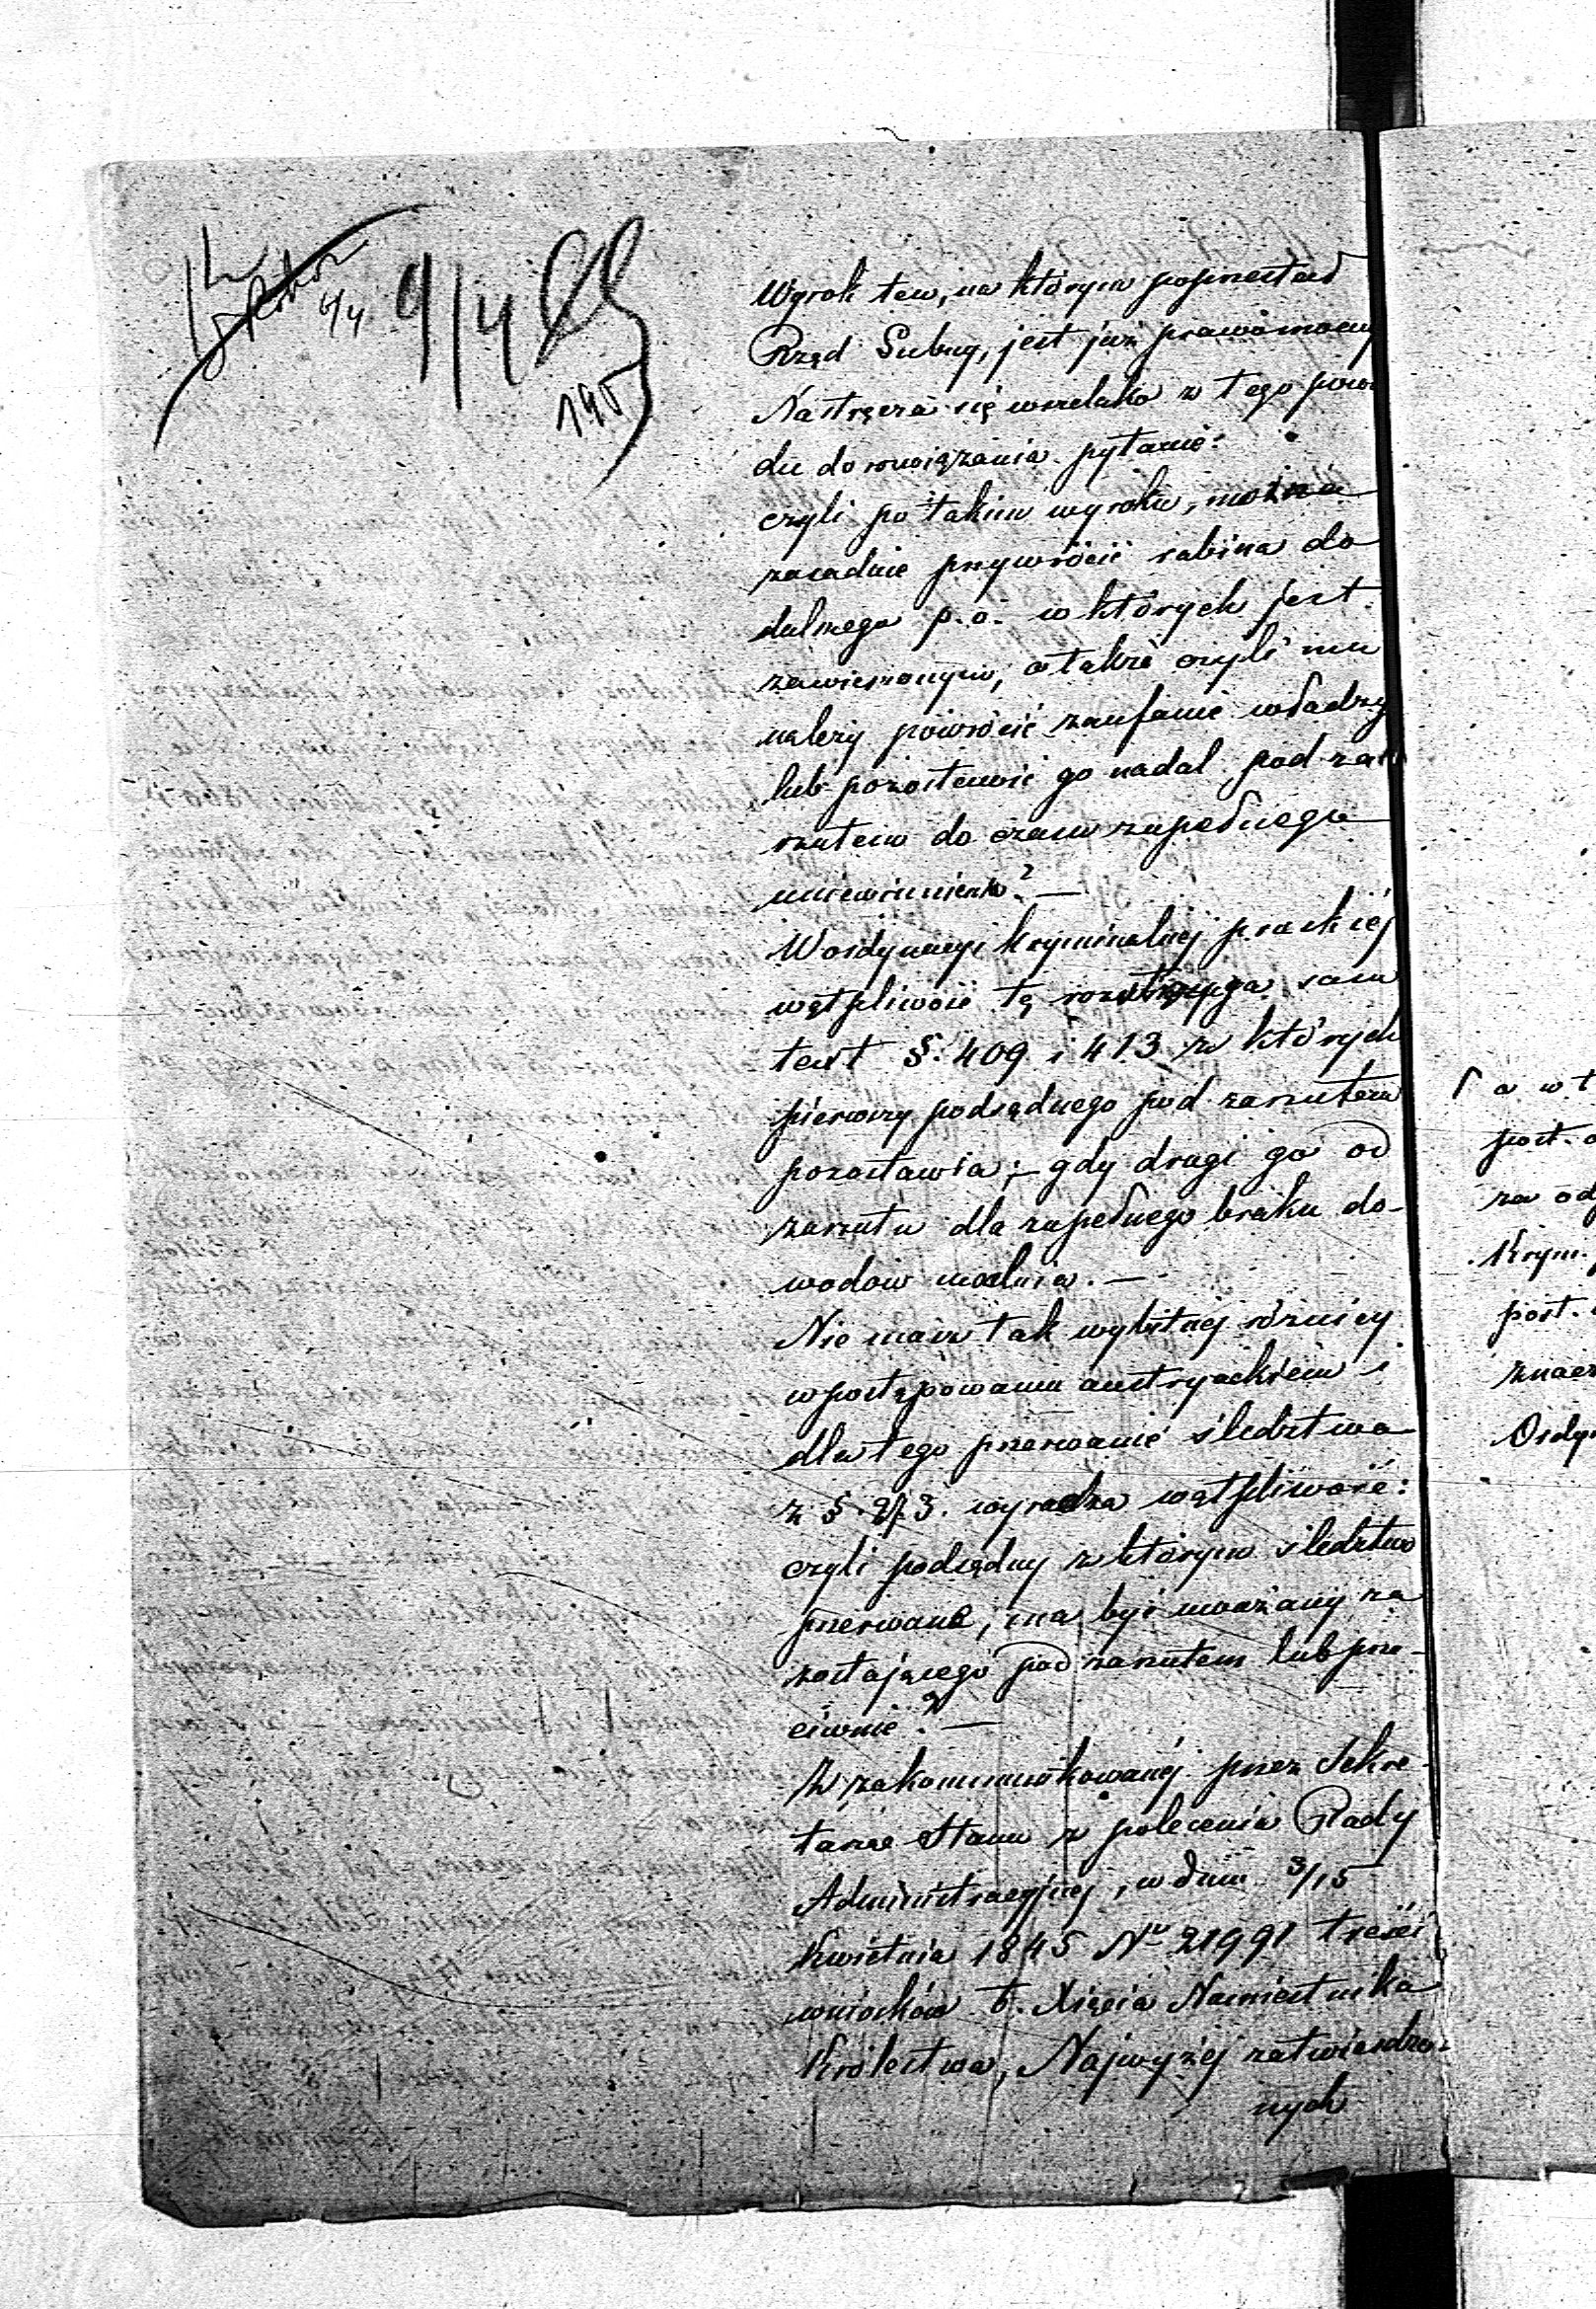 6/4 9/4
195
Wyrok ten, na którym poprzestał
Rząd Gubny, jest już prawomocny
Nastręcza się wszelako z tego powo
du do rozwiązania pytanie:
czyli po takim wyroku, można
zasadnie przywrócić rabina do
dalszego p. o. w których jest
zawieszonym, a także czyli mu
należy powrócić zaufanie władzy
lub pozostawić go nadal pod za
rzutem do czasu zupełnego
uniewinnienia? —
W ordynacyi kryminalnej pruskiej
wątpliwość tę rozstrzyga sam
text §. 409 i 413 z których
pierwszy podsądnego pod zarzutem
pozostawia; — gdy drugi go od
zarzutu dla zupełnego braku do-
wodów uwalnia. —
Nie masz tak wybitnej różnicy
w postępowaniu austryackiem i
dla tego przerwanie śledztwa
z §. 273. wyradza wątpliwość:
czyli podsądny z którym śledztwo
przerwane, ma być uważany za
zostającego pod zarzutem lub prze-
ciwnie? —
W zakommunikowanej przez Sekre-
tarza Stanu z polecenia Rady
Administracyjnej, w dniu 3/15
Kwietnia 1845 No 21991 treści
wniosków b. Xięcia Namiestnika
Królestwa, Najwyżej zatwierdzo-
nych
a w t
post.
za od
Krym.
post.
znacz
Ordyn